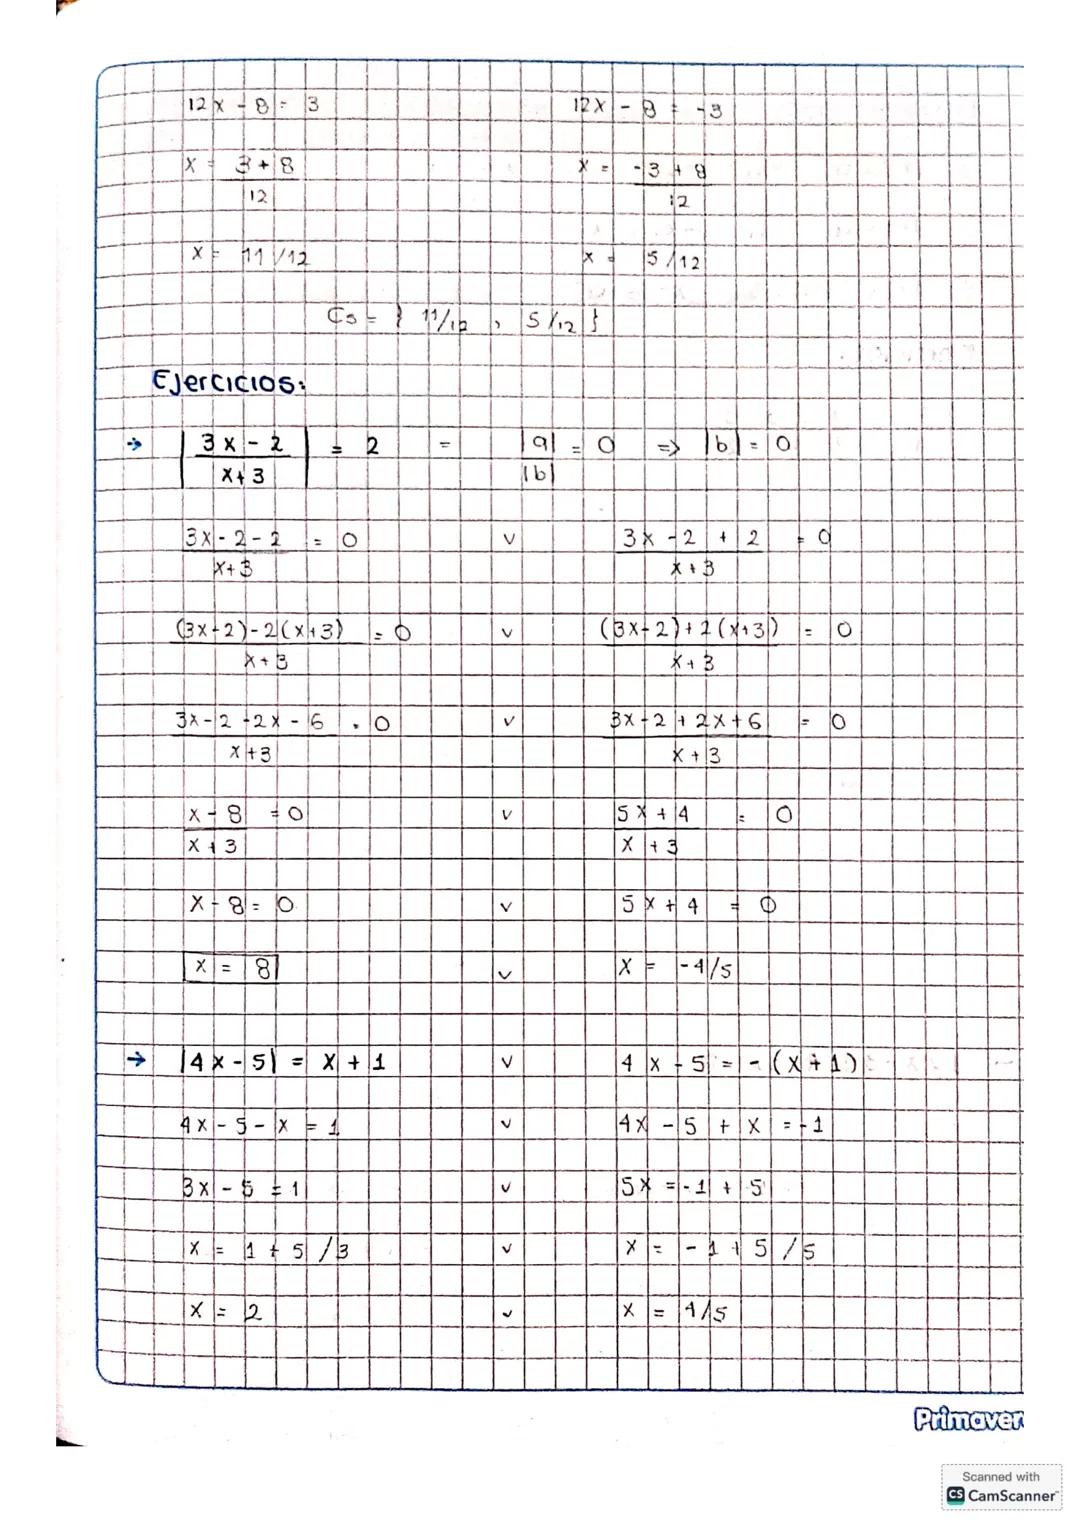 12x - 8 = 3 12x - 8 = -3
x = 3 + 8 / 12 x = -3 + 8 / 12
x = 11/12 x = 5/12
Cs = { 11/12 , 5/12 }
Ejercicios:
→ | 3x - 2 / x+3 | = 2 = |a| / |b| = 0 => |b| = 0
3x - 2 - 2 / x+3 = 0 v 3x - 2 + 2 / x+3 = 0
(3x-2) - 2(x+3) / x+3 = 0 v (3x-2) + 2(x+3) / x+3 = 0
3x - 2 - 2x - 6 / x+3 = 0 v 3x - 2 + 2x + 6 / x+3 = 0
x - 8 / x+3 = 0 v 5x + 4 / x+3 = 0
x - 8 = 0 v 5x + 4 = 0
x = 8 v x = -4/5
→ |4x - 5| = x + 1 v 4x - 5 = -(x+1)
4x - 5 - x = 1 v 4x - 5 + x = -1
3x - 5 = 1 v 5x = -1 + 5
x = 1 + 5 /3 v x = -1 + 5 /5
x = 2 v x = 4/5
Primaver
Scanned with
CS CamScanner